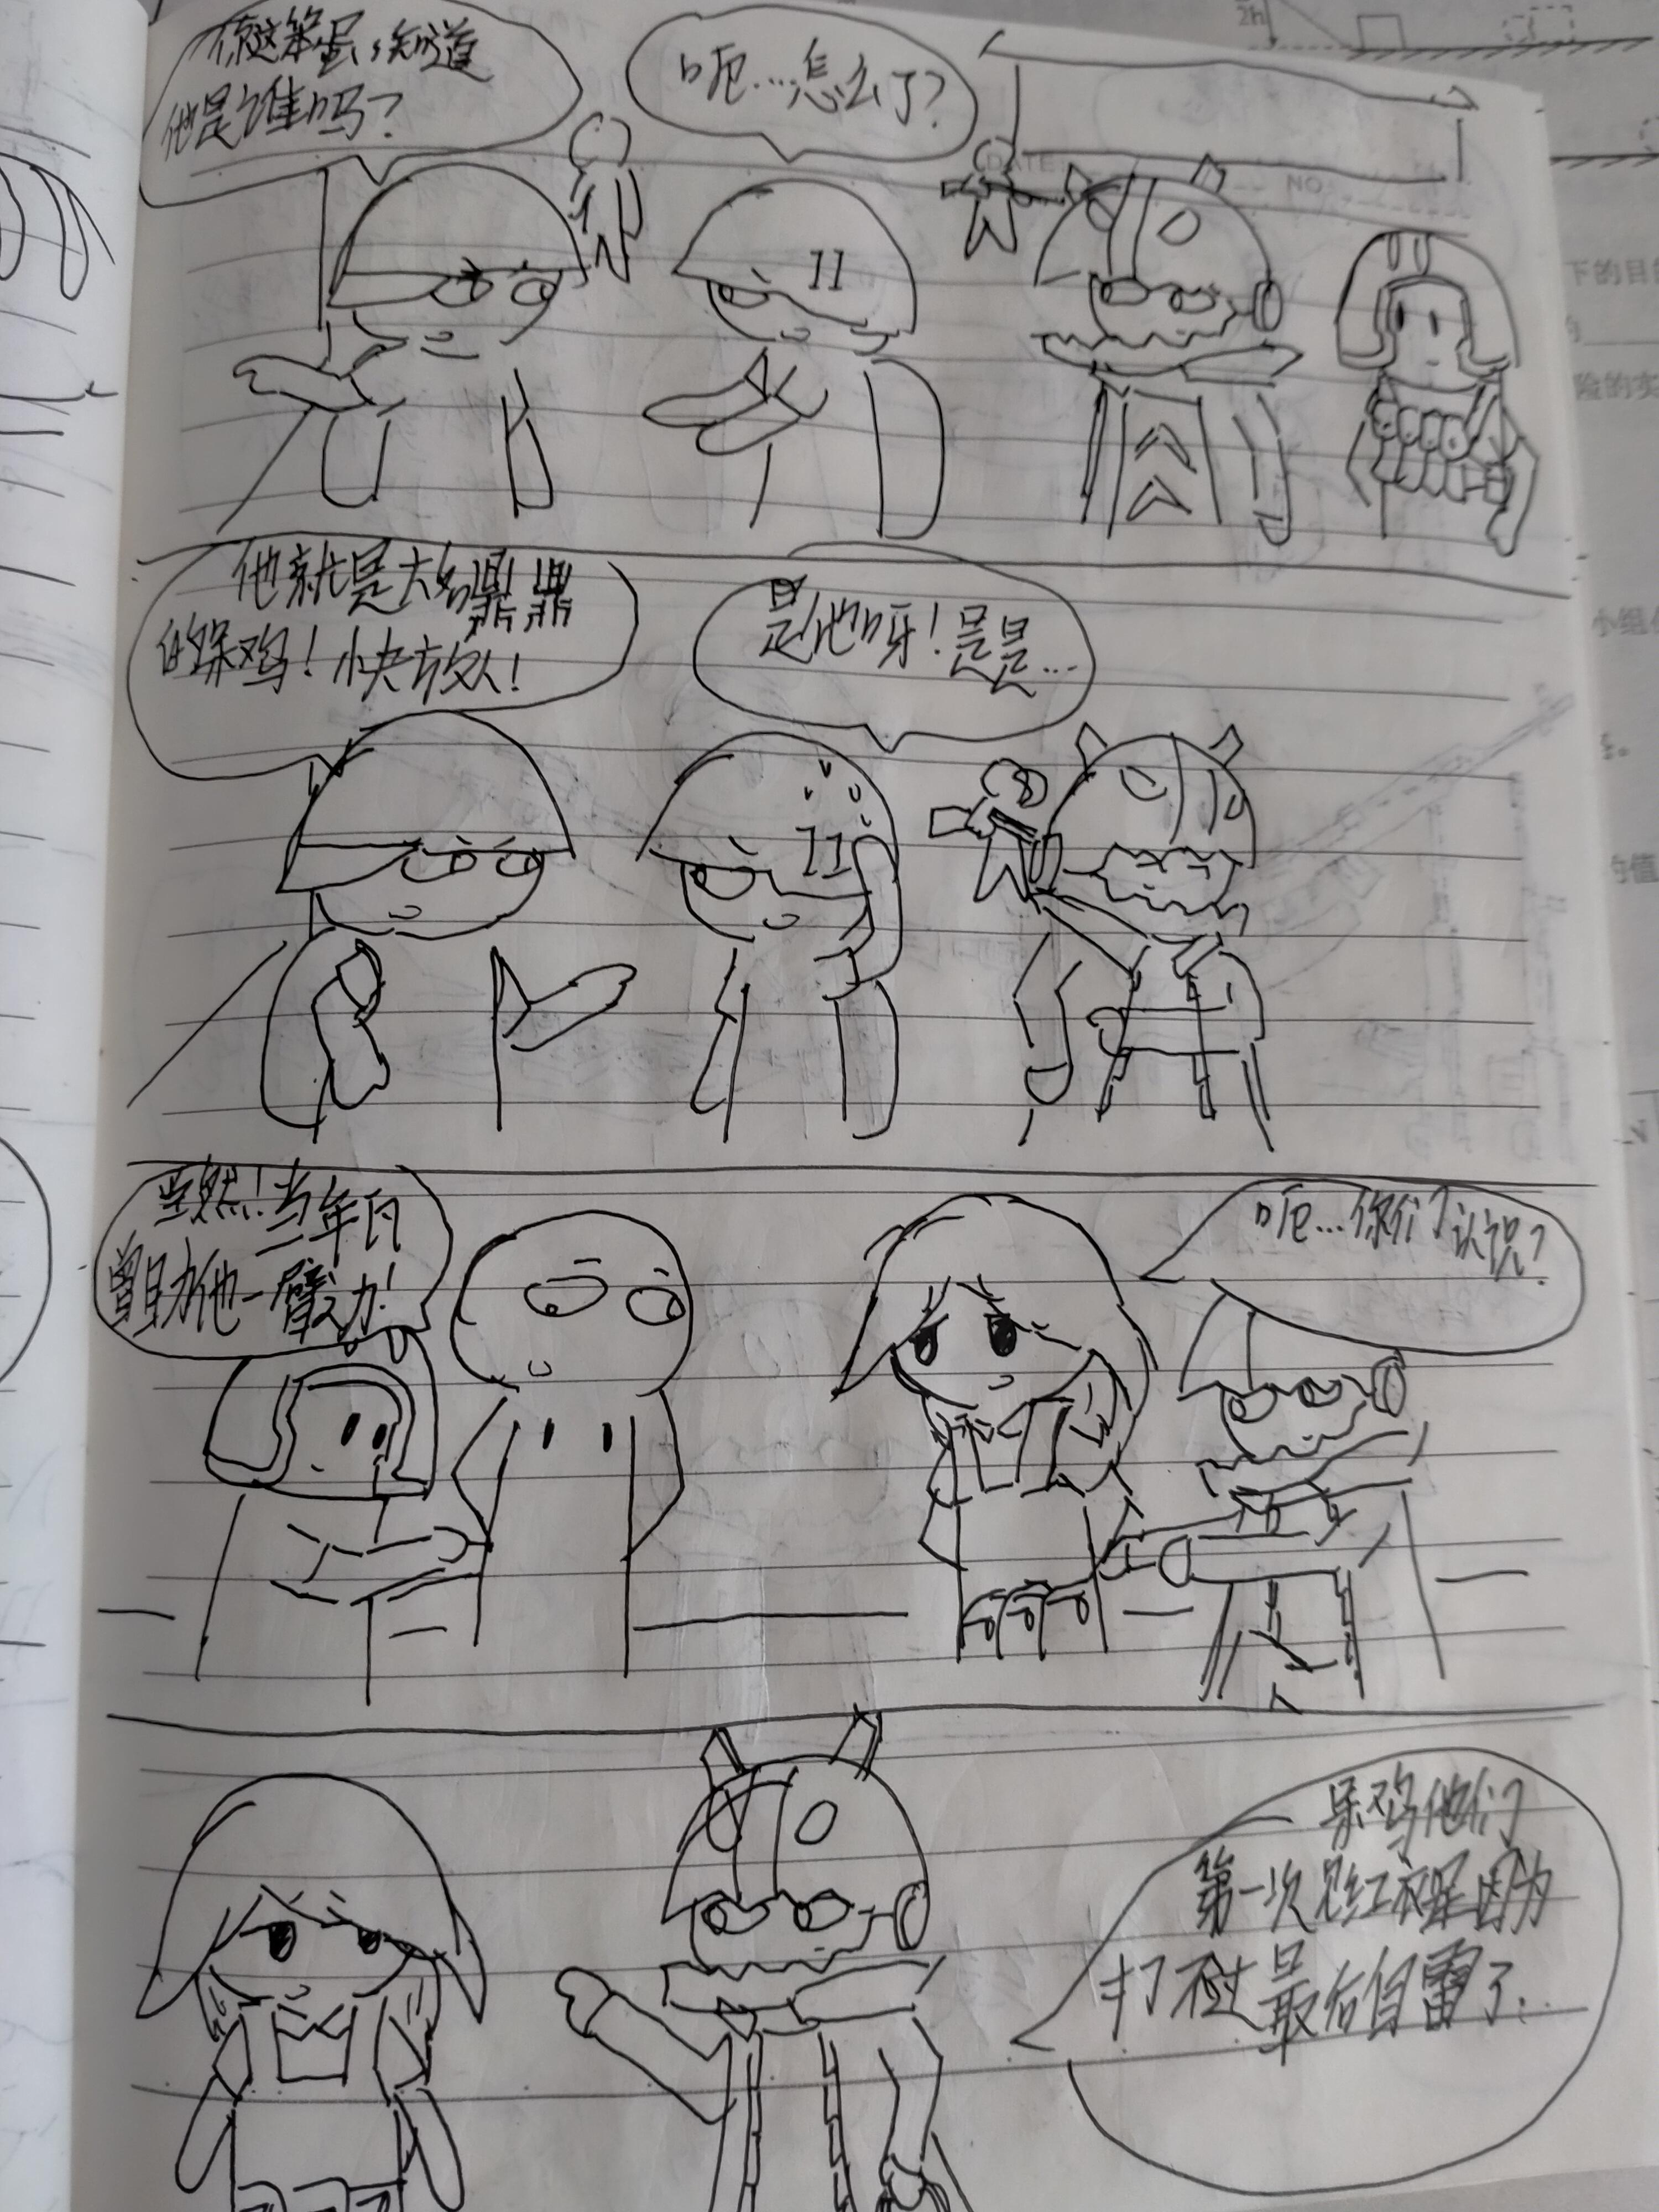 你这笨蛋，知道
他是谁吗？
呃…怎么了？
11
DATE
NO.
2h
下的目
险的实
他就是大名鼎鼎
的呆鸡！快放人！
是他呀！是是…
11
小组
的值
当然！当年
曾助他一臂之力！
呃…你们认识？
呆鸡他们
第一次见红衣是因为
打不过最后自雷了…